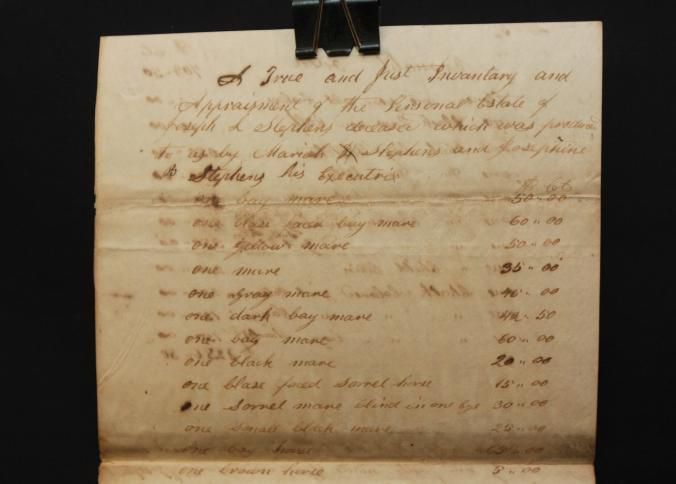 A True and Just Invantary and
Appraisment of the Personal Estate of
Joseph L Stephens deceased which was produce
to us by Mariah H Stephens and Josephine
A Stephens his Executrix
$ cts
one bay mare 50.00
one blase faced bay mare 60.00
one yellow mare 50.00
one mare 35.00
one Gray mare 00
one dark bay mare 50
one bay mare 60.00
one black mare 20.00
one blase faced Sorrel horse 15.00
one Sorrel mare blind in one Eye 30.00
one small black mare 25.00
one bay horse 00
one brown horse 5.00